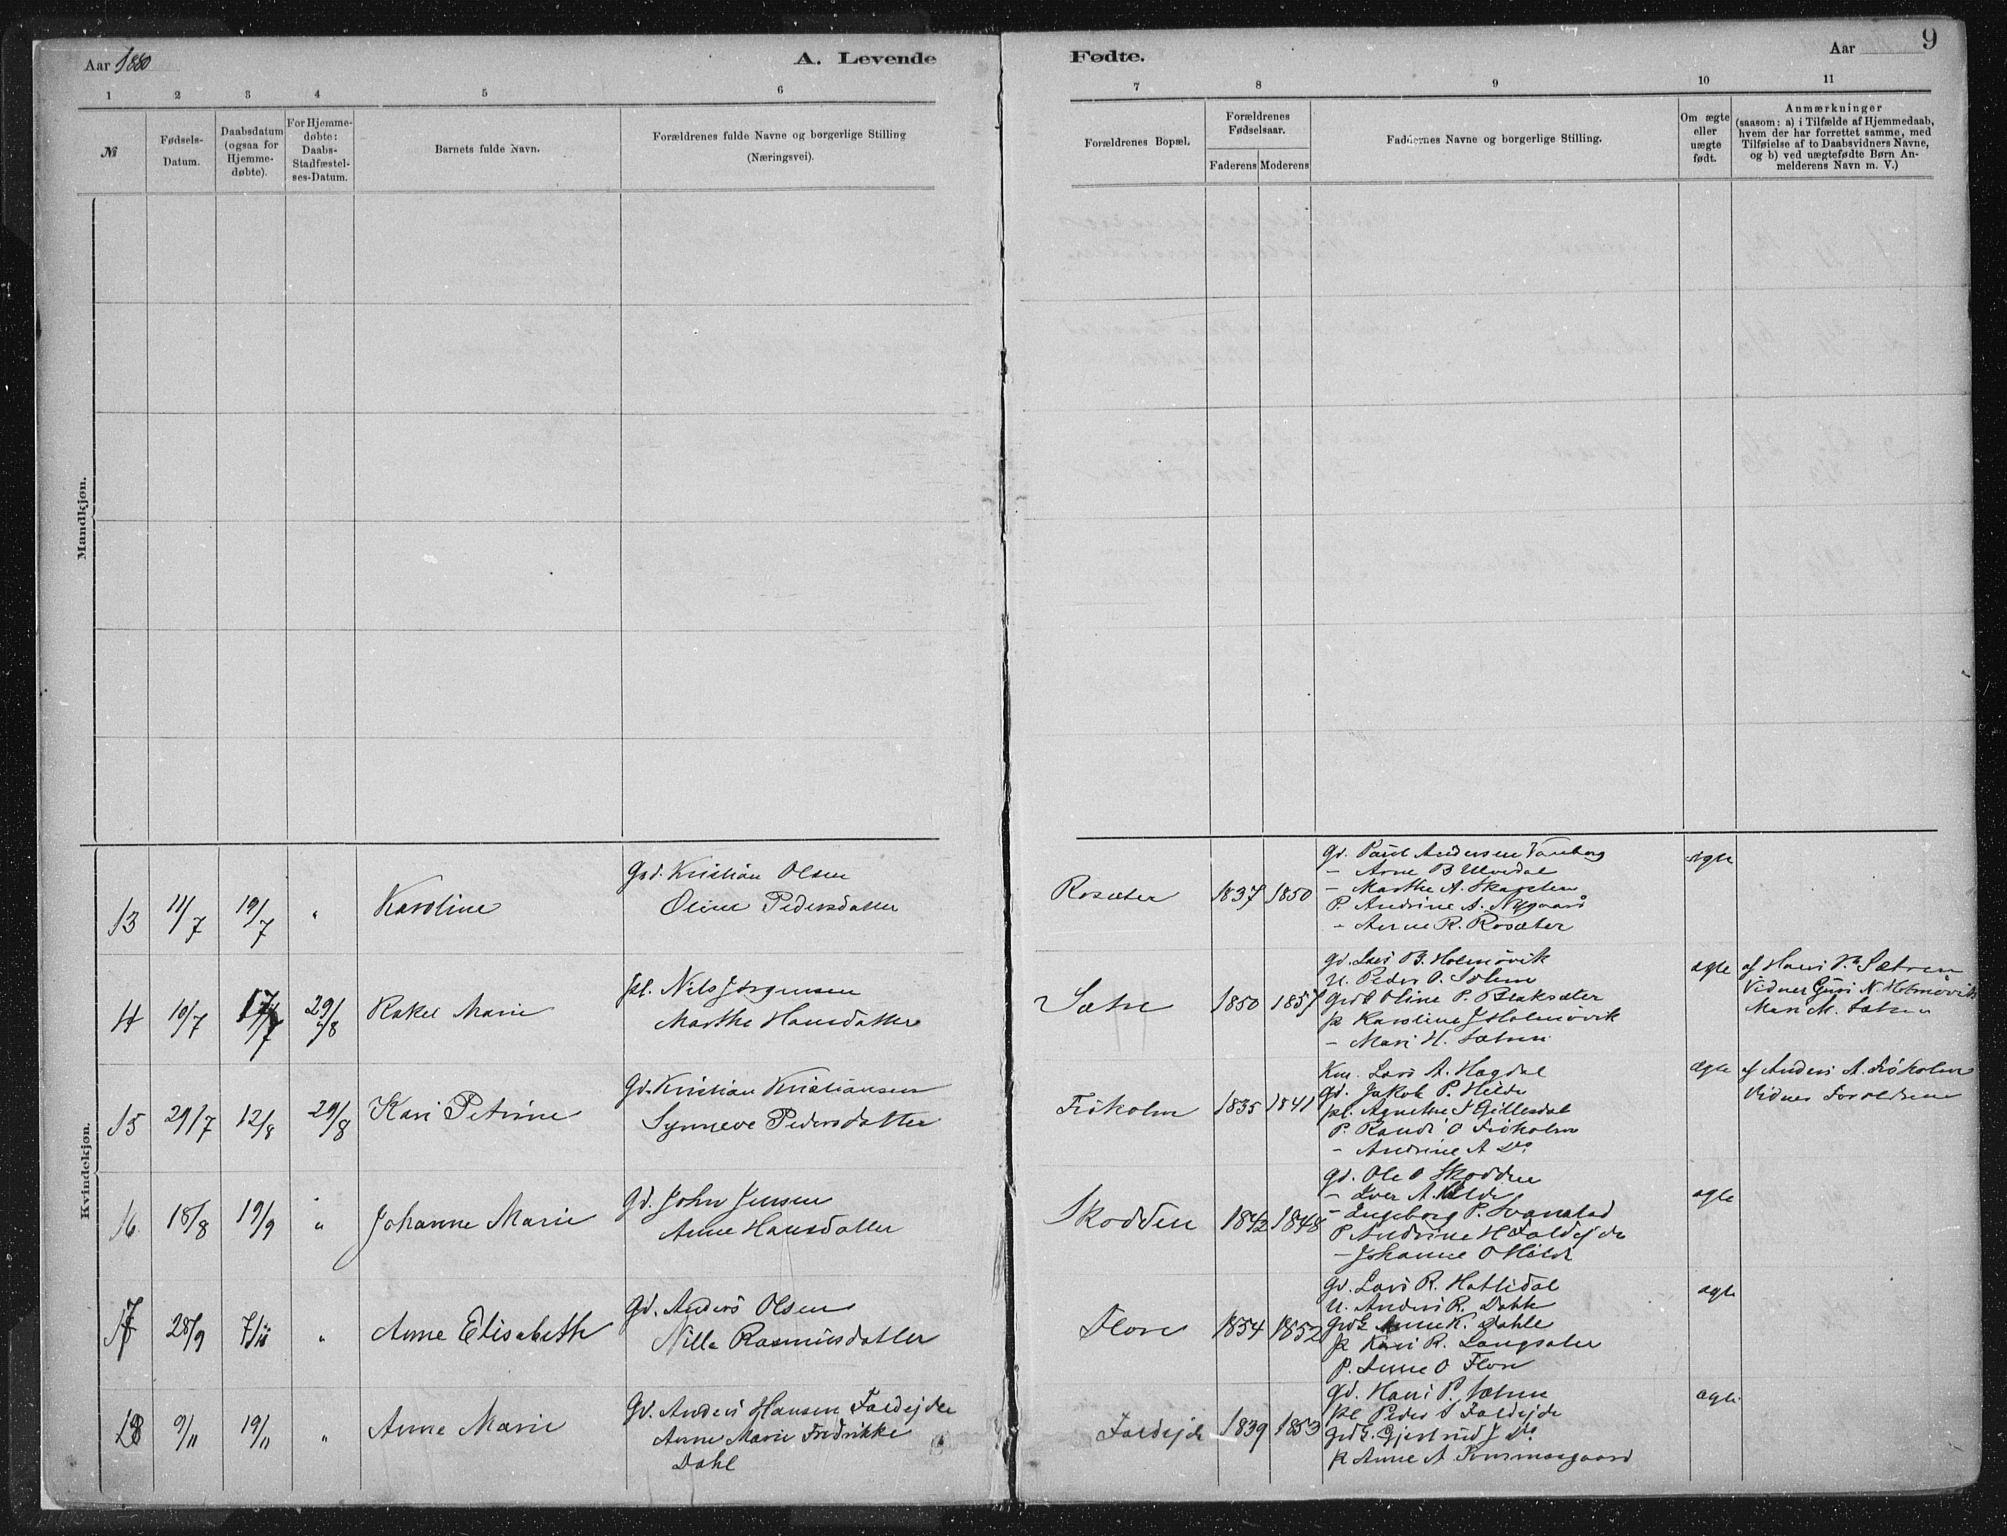 Aar 1880
A. Levende
Fødte.
Aar
9
1
2
3
4
5
6
7
8
9
10
11
№
Fødsels-
Datum.
Daabsdatum
(ogsaa for
Hjemme-
døbte).
For Hjemme-
døbte:
Daabs-
Stadfæstel-
ses-Datum.
Barnets fulde Navn.
Forældrenes fulde Navne og borgerlige Stilling
(Næringsvei).
Forældrenes Bopæl.
Forældrenes
Fødselsaar.
Faderens
Moderens
Faddernes Navne og borgerlige Stilling.
Om ægte
eller
uægte
født.
Anmærkninger
(saasom: a) i Tilfælde af Hjemmedaab,
hvem der har forrettet samme, med
Tilføielse af to Daabsvidners Navne,
og b) ved uægtefødte Børn An-
melderens Navn m. V.)
Mandkjøn.
Kvindekjøn.
13
11/7
19/7
"
Karoline
Gd. Kristian Olsen
Oline Pedersdatter
Rosæter
1837
1850
Gd. Paul Andersen
- Arne B Ulvedal
- Marthe A. Skapelen
P. Andrine A. Nygaard
- Anne R. Rosæter
ægte
14
10/7
17/7
29/8
Rakel Marie
pl. Nils Jørgensen
Marthe Hansdatter
Sætre
1850
1857
Gd. Lars B. Holmøvik
U. Peder O. Solem
GrdK Oline P. Blaksæter
P. Karoline J Holmøvik
- Mari H. Sætren
ægte
af Hans P. Sætren
Vidner Guri N. Holmøvik
Mari M. Sætren
15
29/7
12/8
29/8
Kari Petrine
Gd. Kristian Kristiansen
Synneve Pedersdatter
Friskolm
1835
1841
Km. Lars A. Hagdal
Gd. Jakob P. Hilde
pl. Agnethe J Gillesdal
P. Randi O Friskolm
- Andrine A Do
ægte
af Anders A. Friskolm
Vidner Forældrene
16.
18/8
19/9
"
Johanne Marie
Gd. John Jensen
Anne Hansdatter
Skodden
1842
1848
Gd. Ole O Skodden
- Iver A. Hilde
- Ingeborg P. Svanstad
P. Andrine H Faldejde
- Johanne O Hilde
ægte
17
28/9
7/11
"
Anne Elisabeth
Gd. Anders Olsen
Nille Rasmusdatter
Flore
1854
1852
Gd. Lars R. Hatledal
U. Anders R. Dahle
GrdK Anne K. Dahle
P. Kari R. Langsæter
P. Anne O Flore
ægte
18
9/11
19/11
"
Anne Marie
Gd. Anders Hansen Faldejde
Anne Marie Fredrikke
Dahl
Faldejde
1839
1853
Gd. Hans P. Sætren
pl. Peder S Faldejde
GrdK. Gjertrud J Do
P. Anne A Tommasgaard
ægte